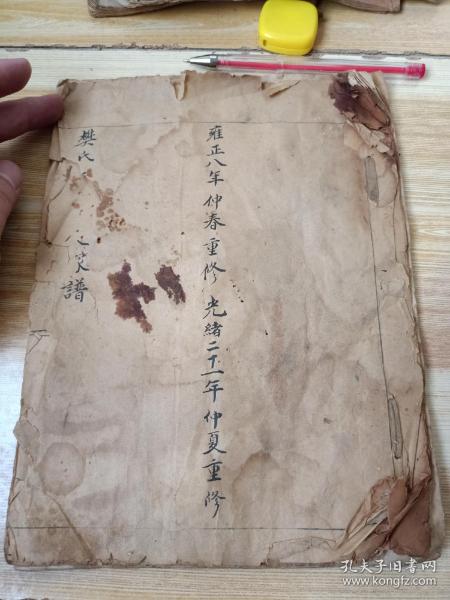 雍正八年仲春重修 光緒二十一年仲夏重修
樊氏 之 譜
孔夫子旧书网
www.kongfz.com